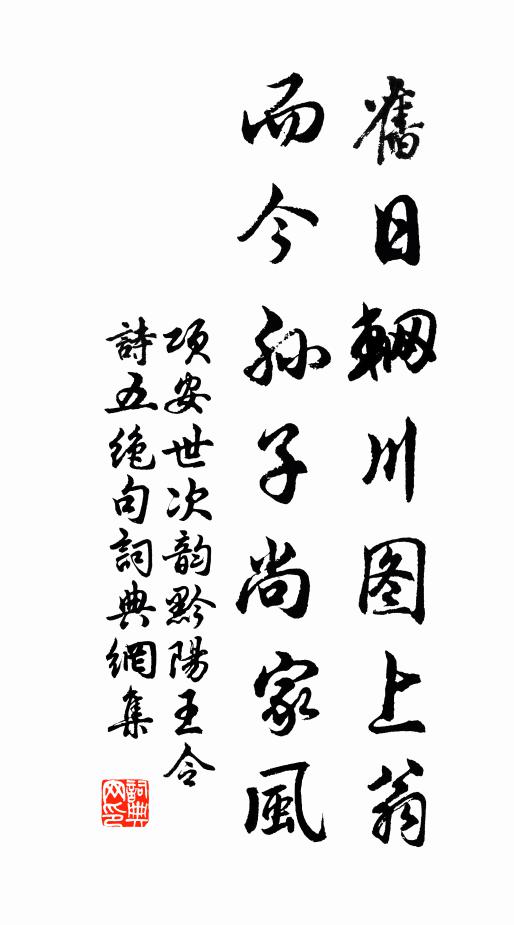 舊日輞川图上翁
而今孙子尚家風
项安世次韵黔陽王令
詩五绝句詞典網集
詞典网印